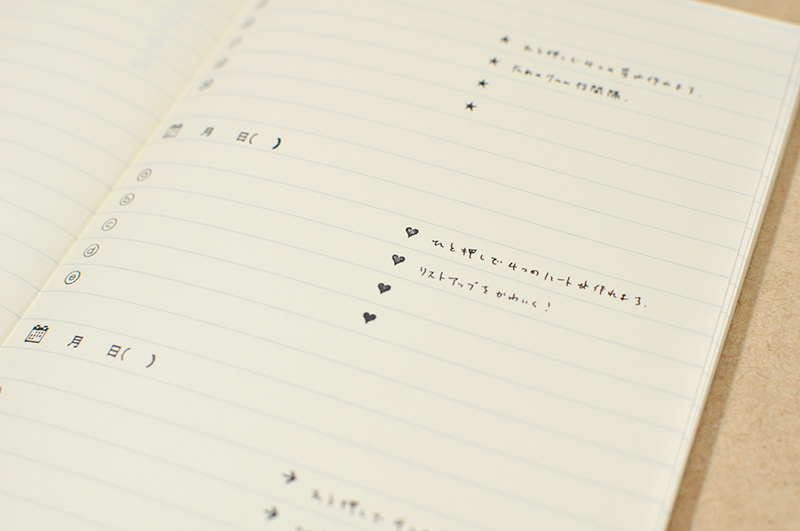 ★ ひと押しで4つの星が作れます。
★ ための7mm行間隔。
★
★
月 日( )
ⓐ
ⓑ
ⓒ
ⓓ
ⓔ
♥ ひと押しで4つのハートが作れます。
♥ リストアップをかわいく!
♥
♥
月 日( )
→ ひと押しで
→